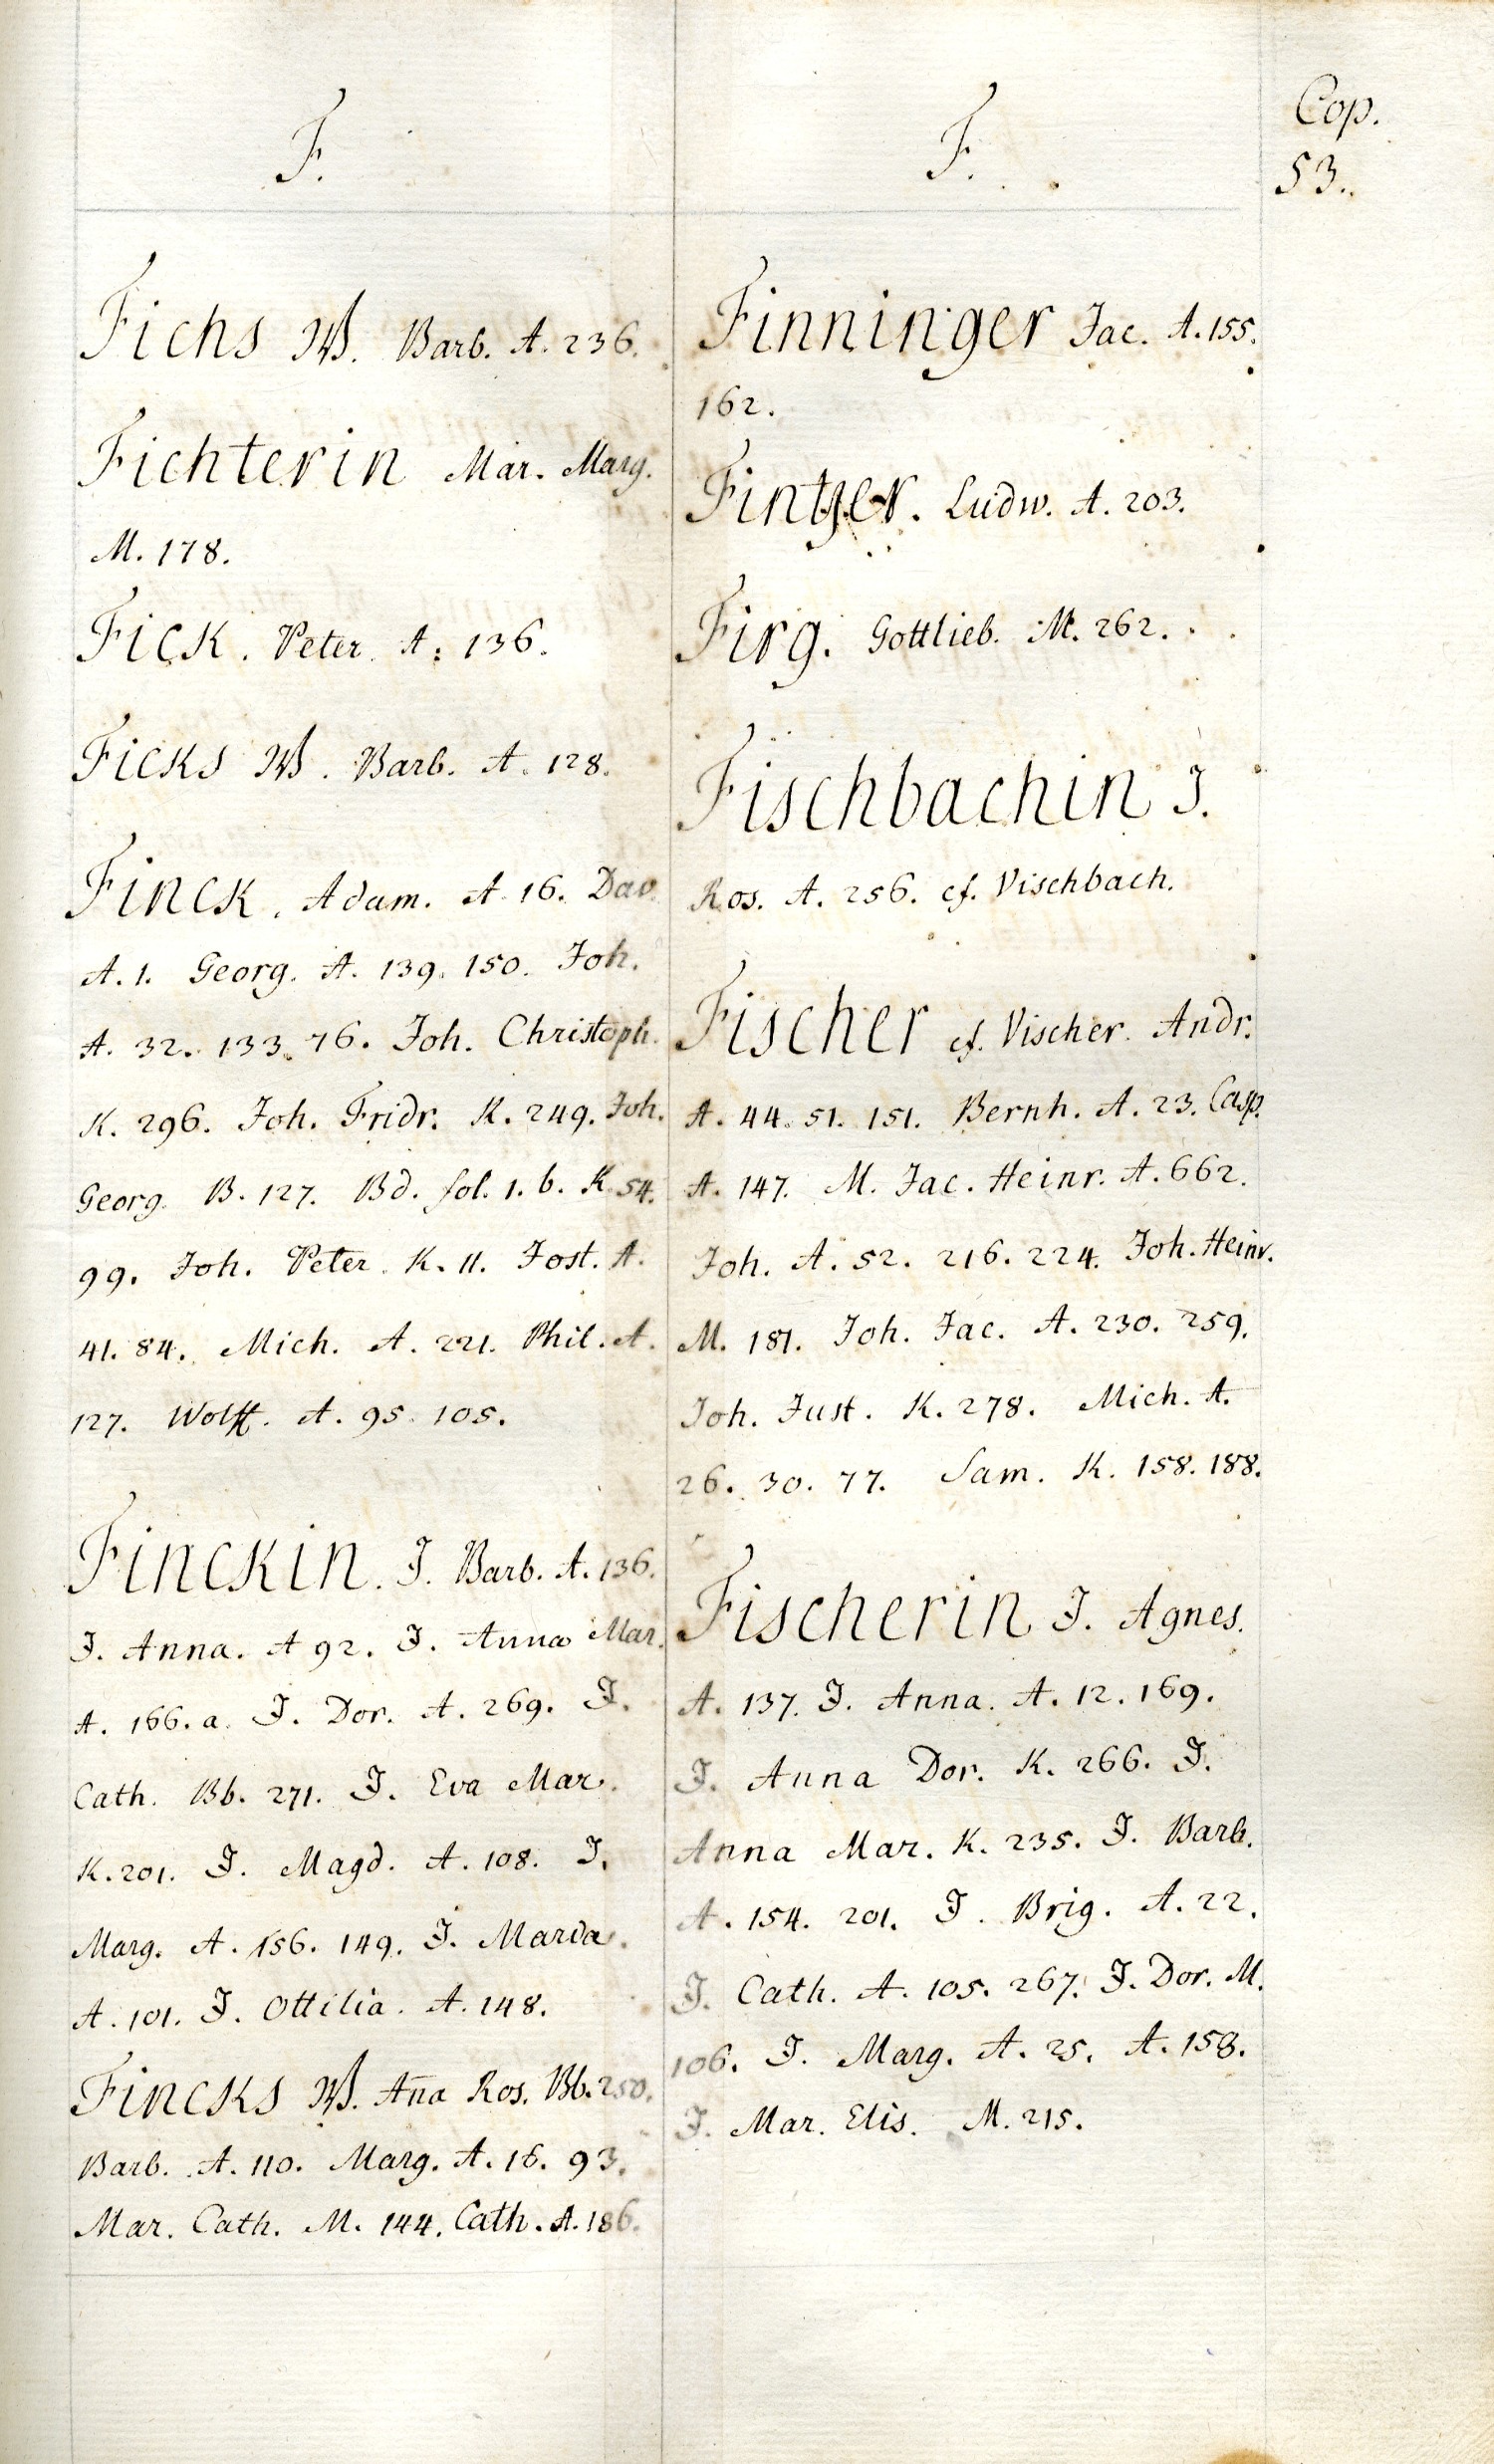 F.
Fichs W. Barb. A. 236.
Fichterin Mar. Marg.
M. 178.
Fick. Peter. A. 136.
Ficks W. Barb. A. 128.
Finck. Adam. A. 16. Dav.
A. 1. Georg. A. 139. 150. Joh.
A. 32. 133. 76. Joh. Christoph.
K. 296. Joh. Fridr. K. 249. Joh.
Georg. B. 127. Bd. fol. 1. b. K. 54.
99. Joh. Peter. K. 11. Jost. A.
41. 84. Mich. A. 221. Phil. A.
127. Wolff. A. 95. 105.
Finckin. J. Barb. A. 136.
J. Anna. A 92. J. Anna Mar.
A. 166. a. J. Dor. A. 269. J.
Cath. Bb. 271. J. Eva Mar.
K. 201. J. Magd. A. 108. J.
Marg. A. 156. 149. J. Maria.
A. 101. J. Ottilia. A. 148.
Fincks W. Aña Ros. Bb. 250.
Barb. A. 110. Marg. A. 16. 93.
Mar. Cath. M. 144. Cath. A. 186.
F.
Finninger Jac. A. 155.
162.
Ludw. A. 203.
Firg. Gottlieb. M. 262.
Fischbachin J.
Ros. A. 256. cf. Vischbach.
Fischer cf. Vischer. Andr.
A. 44. 51. 151. Bernh. A. 23. Casp.
A. 147. M. Jac. Heinr. A. 662.
Joh. A. 52. 216. 224. Joh. Heinr.
M. 181. Joh. Jac. A. 230. 259.
Joh. Just. K. 278. Mich. A.
26. 30. 77. Sam. K. 158. 188.
Fischerin J. Agnes.
A. 137. J. Anna. A. 12. 169.
J. Anna Dor. K. 266. J.
Anna Mar. K. 235. J. Barb.
A. 154. 201. J. Brig. A. 22.
J. Cath. A. 105. 267. J. Dor. M.
106. J. Marg. A. 25. A. 158.
J. Mar. Elis. M. 215.
Cop.
53.